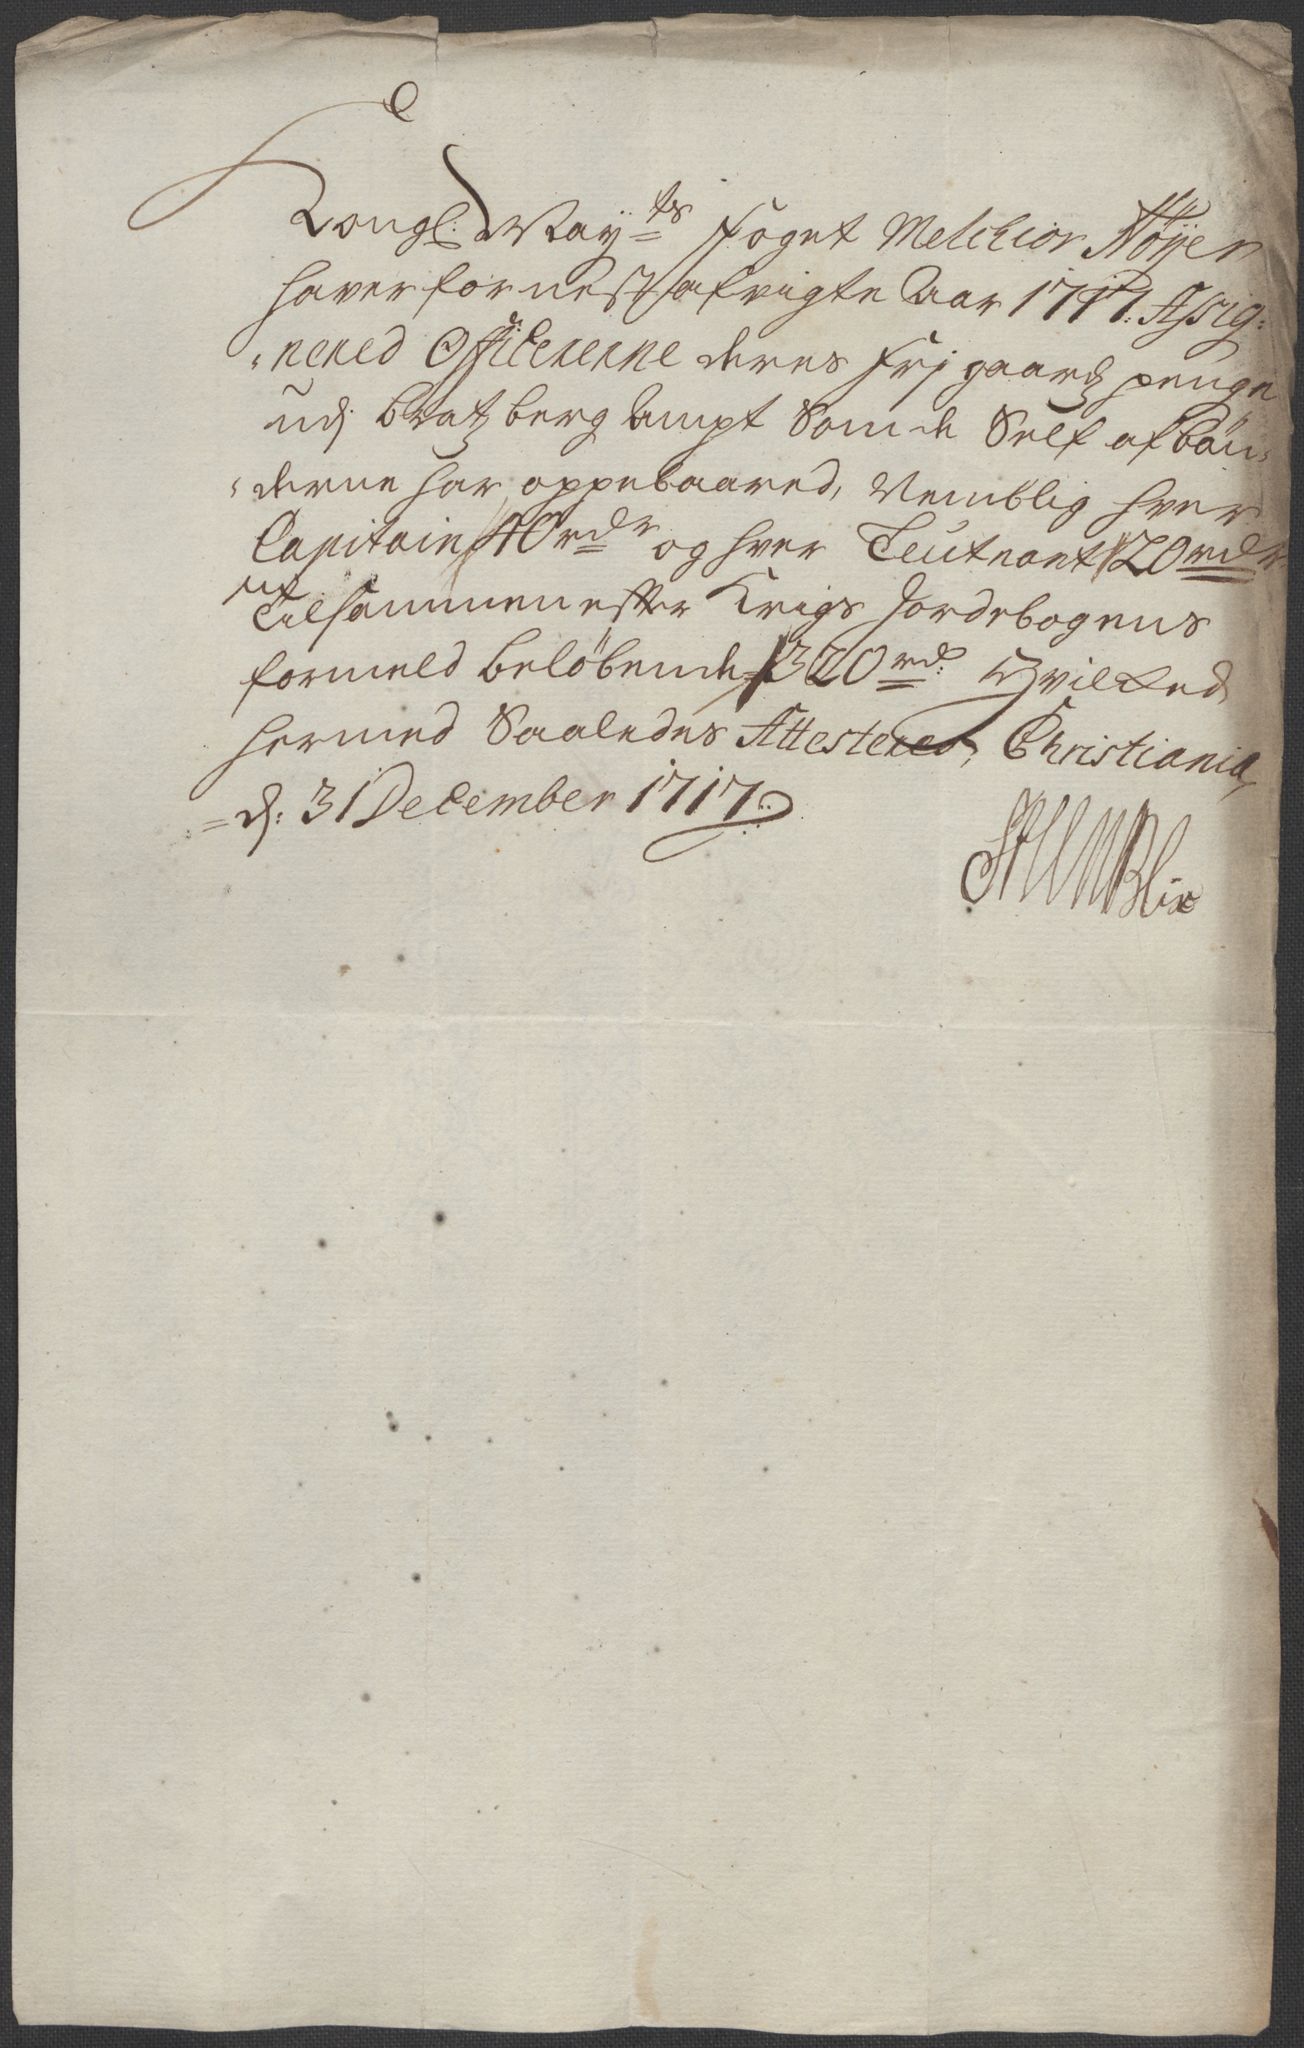 Kongl: May:ts Foget Melchior Höyer
haver for nest afvigte Aar 1717. Assig:
nered Officererne deres Frj gaards penge
udj Bratzberg Ampt Som de Self af bön,
derne har oppebaared, Nemblig hver
Capitain 40 rdr og hver Leutnant 20 rdr
Tilsammen effter Krigs Jordebogens
formeld belöbende 320 rd: Hvilked
hermed Saaledes Attestered, Christiania
d: 31 December 1717
Blix